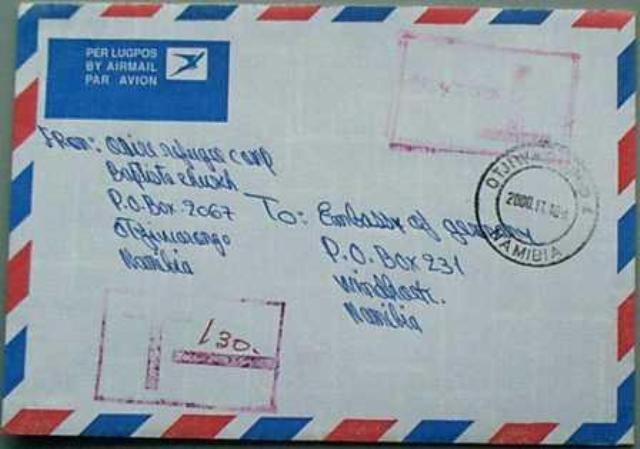 PER LUGPOS
BY AIRMAIL
PAR AVION
From: osire refugee camp
Baptiste church
P.O.Box 2067
Otjiwarongo
Namibia
To: Embassy of germany
P.O. Box 231
Windhoek.
Namibia
2000. 11.
NAMIBIA
130.